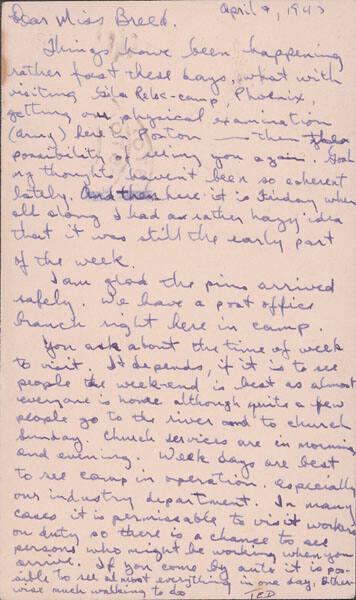 Dear Miss Breed. April 9, 1943
Things have been happening
rather fast these days, what with
visiting Gila Reloc-camp, Phoenix,
getting our physical examination
(army) here in Poston — then
possibility of seeing you again. Gosh
my thoughts haven't been so coherent
lately. And then here it is Friday when
all along I had as rather hazy idea
that it was still the early part
of the week.
I am glad the pins arrived
safely. We have a post office
branch right here in camp.
You ask about the time of week
to visit. It depends, if it is to see
people the week-end is best as almost
everyone is home although quite a few
people go to the river and to church
Sunday. Church services are in morning
and evening. Week days are best
to see camp in operation. especially
our industry department. In many
cases it is permissable to visit workers
on duty so there is a chance to see
persons who might be working when you
arrive. If you come by auto it is pos-
sible to see almost everything in one day, Other-
wise much walking to do TED